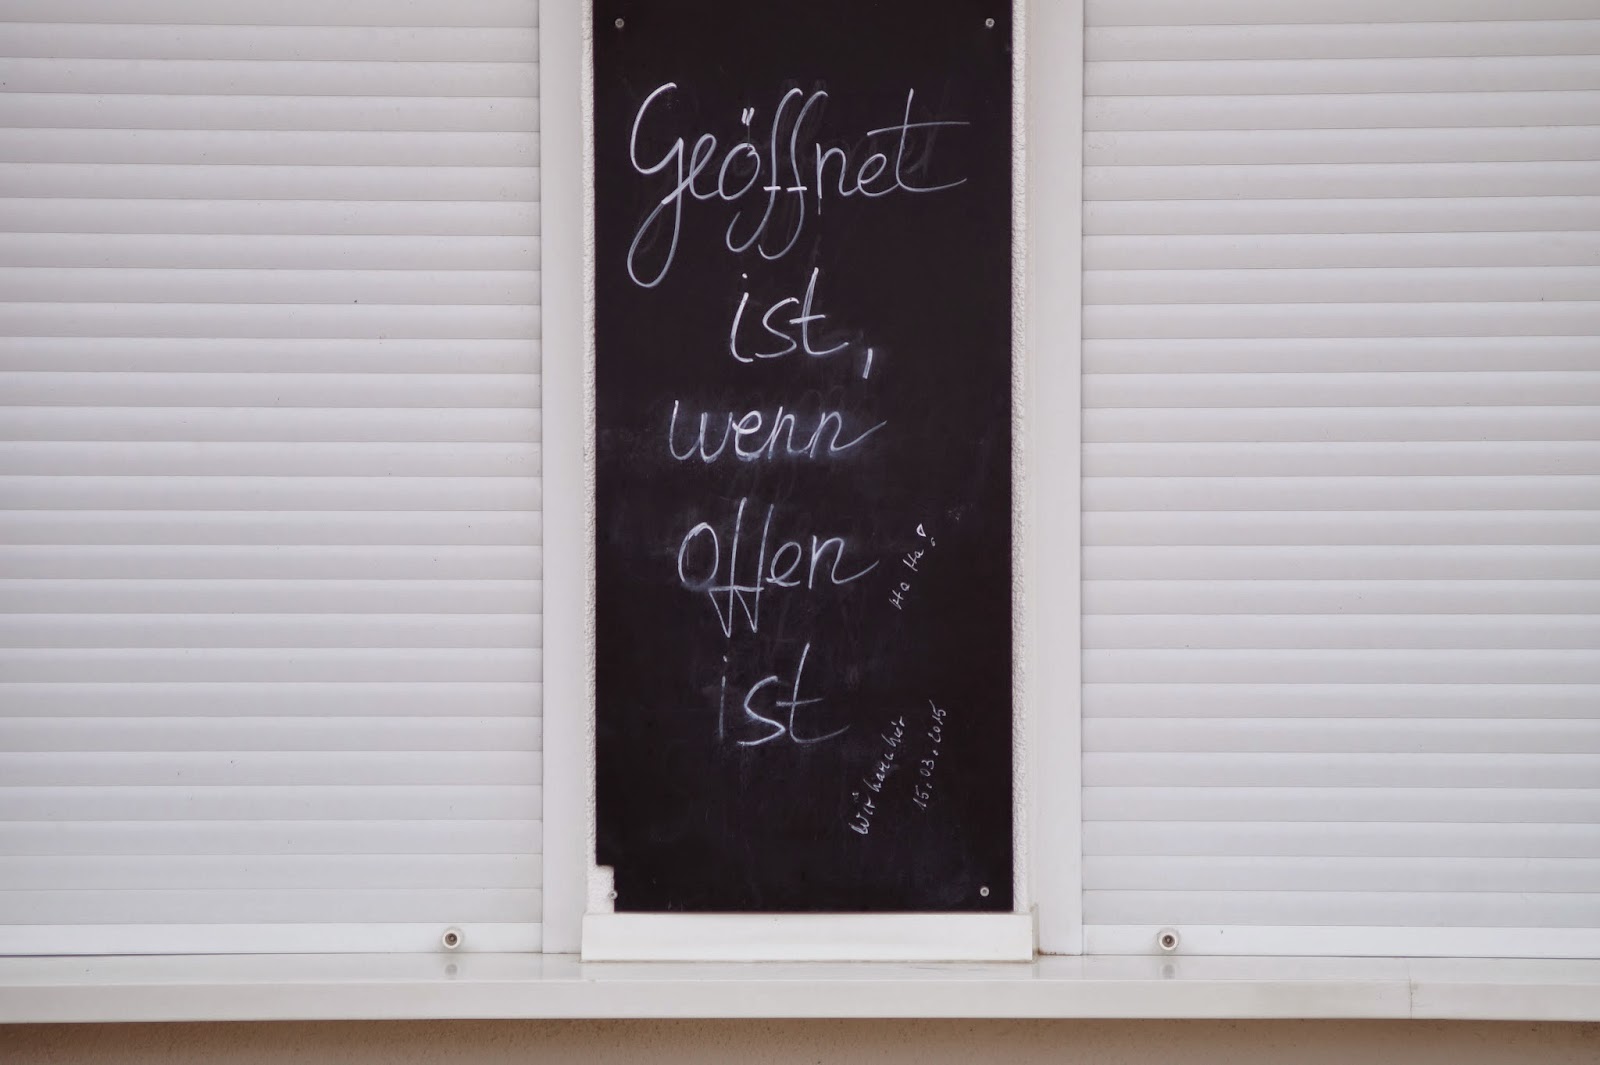 Geöffnet
ist,
wenn
offen
ist
Ha Ha!
Wir waren hier
15.03.2015